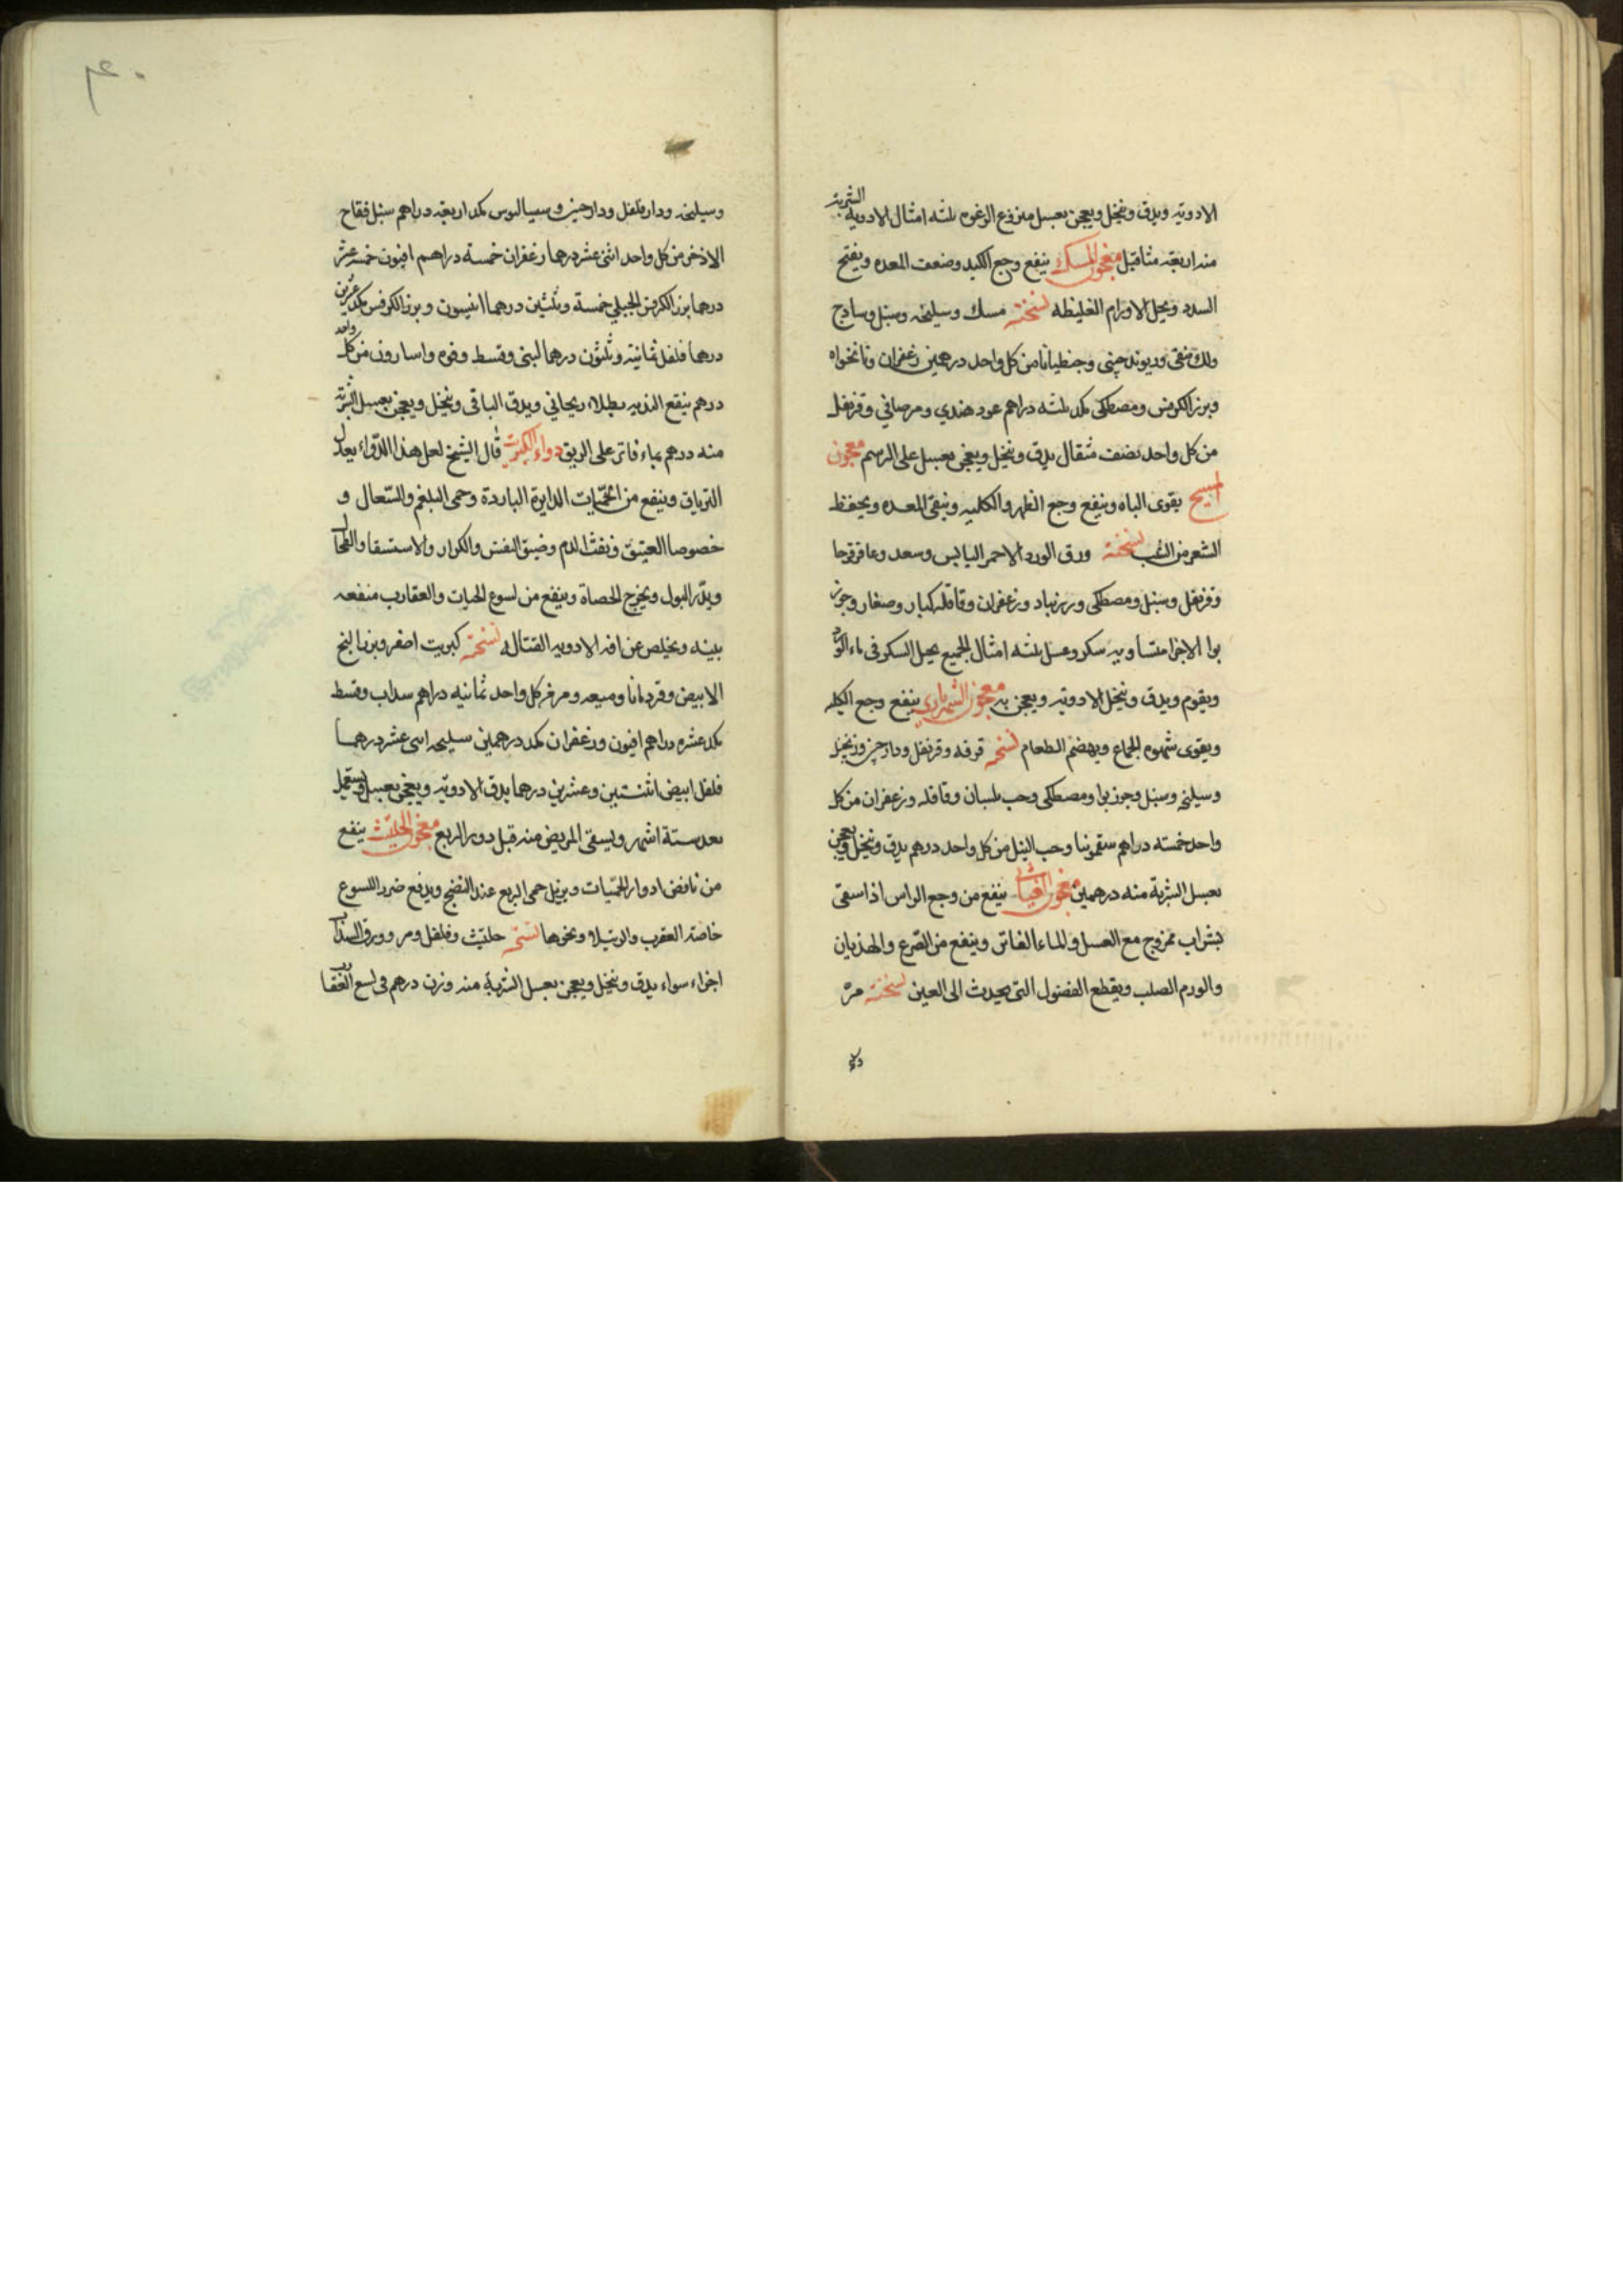 الادوية ويدق وينخل ويعجن بعسل منزوع الرغوه ثلثه امثال الادويه الشربة
منه اربعة مثاقيل معجون المسك ينفع وجع الكبد وضعف المعده ويفتح
السدد ويحل الاورام الغليظه نسخته مسك وسليخه وسنبل وسادج
ولك منقى وريوند چينى وجنطيانا من كل واحد درهمين زعفران ونانخواه
وبزر الكرفس ومصطكى مكد ثلثه دراهم عود هندي ومر صافي وقرنفل
من كل واحد نصف مثقال يدق وينخل ويعجن بعسل على الرسم معجون
المسيح يقوى الباه وينفع وجع الظهر والكليه وينقى المعده ويحفظ
الشعر من الشيب نسخته ورق الورد الاحمر اليابس وسعد وعاقرقرحا
وقرنفل وسنبل ومصطكى وزرنباد وزعفران وقاقله كبار وصغار وجوز
بوا الاجزا متساويه سكر وعسل ثلثه امثال الجميع يحل السكر فى ماء الورد
ويقوم ويدق وينخل الادوية ويعجن به معجون الشهرياري ينفع وجع الكليه
ويقوى شهوه الجماع ويهضم الطعام نسخته قرفه وقرنفل ودارچين وزنجبيل
وسليخه وسنبل وجوز بوا ومصطكى وحب بلسان وقاقله وزعفران من كل
واحد خمسته دراهم سقمونيا وحب النيل من كل واحد درهم يدق وينخل ويعجن
بعسل الشربة منه درهمين معجون ينفع من وجع الراس اذا سقى
بشراب ممزوج مع العسل والماء الفاتر وينفع من الصرع والهذيان
والورم الصلب ويقطع الفضول التى يحدث الى العين نسخته مرّ
وسليخه ودارفلفل ودارچين وسيساليوس مكد اربعة دراهم سنبل فقاح
الاذخر من كل واحد اثنى عشر درهما زعفران خمسة دراهم افيون خمسه عشر
درهما بزر الكرفس الجبلي خمسة وثلثين درهما انيسون وبزر الكرفس مكد عشرين
درهما فلفل ثمانية وثلثون درهما لبنى وقسط وفوه واسارون من كل واحد
درهم ينقع الذيبه بطلاء ريحاني ويدق الباقى وينخل ويعجن بعسل الشربة
منه درهم بماء فاتر على الريق دواء الكبريت قال الشيخ لعل هذا الدّواء يعدل
الترياق وينفع من الحمّيات الدايرة الباردة وحمى البلغم والسّعال و
خصوصا العتيق ونفث الدم وضيق النفس والكزاز والاستسقا والطحال
ويدّر البول ويخرج الحصاة وينفع من لسوع الحيات والعقارب منفعه
بينه ويخلص عن افه الادويه القتاله نسخته كبريت اصفر وبزر البنج
الابيض وقردمانا وميعه ومر من كل واحد ثمانيه دراهم سداب وقسط
مكد عشره دراهم افيون وزعفران مكد درهمين سليخه اثنى عشر درهما
فلفل ابيض اثنتين وعشرين درهما يدق الادوية ويعجن بعسل ويستعمل
بعد ستة اشهر ويسقى المريض منه قبل دور الربع معجون الحلتيث ينفع
من نافض ادوار الحمّيات ويزيل حمى الربع عند النضج ويدفع ضرر اللسوع
خاصة العقرب والرتيلا ونحوها نسخته حلتيث وفلفل ومر وورق السذاب
اجزاء سواء يدق وينخل ويعجن بعسل الشربة منه وزن درهم فى لسع العقارب